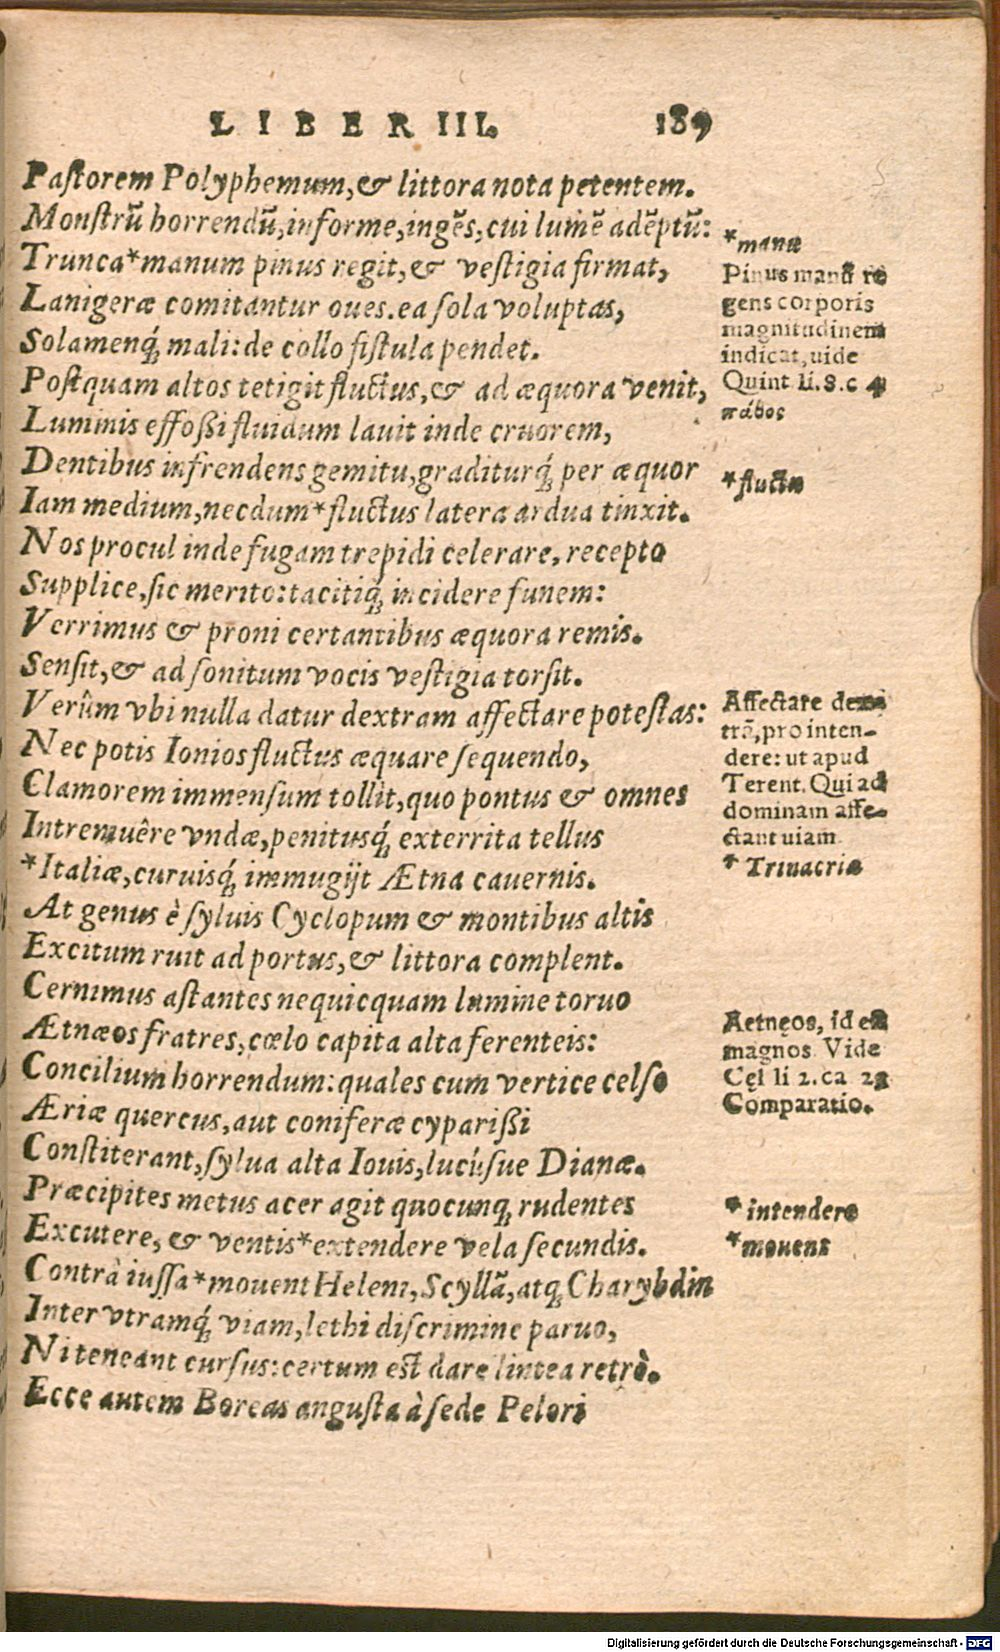 LIBER III. 189
Pastorem Polyphemum, & littora nota petentem.
Monstrũ horrendũ, informe, ingẽs, cui lumẽ adẽptũ:
Trunca *manum pinus regit, & vestigia firmat,
Lanigeræ comitantur oues. ea sola voluptas,
Solamenq́; mali: de collo fistula pendet.
Postquam altos tetigit fluctus, & ad æquora venit,
Luminis effoßi fluidum lauit inde cruorem,
Dentibus infrendens gemitu, graditurq́; per æquor
Iam medium, necdum *fluctus latera ardua tinxit.
Nos procul inde fugam trepidi celerare, recepto
Supplice, sic merito: tacitiq́; incidere funem:
Verrimus & proni certantibus æquora remis.
Sensit, & ad sonitum vocis vestigia torsit.
Verûm vbi nulla datur dextram affectare potestas:
Nec potis Ionios fluctus æquare sequendo,
Clamorem immensum tollit, quo pontus & omnes
Intremuêre vndæ, penitusq́; exterrita tellus
*Italiæ, curuisq́; immugijt Ætna cauernis.
At genus è syluis Cyclopum & montibus altis
Excitum ruit ad portus, & littora complent.
Cernimus astantes nequicquam lumine toruo
Ætnæos fratres, cœlo capita alta ferenteis:
Concilium horrendum: quales cum vertice celso
Æriæ quercus, aut coniferæ cyparißi
Constiterant, sylua alta Iouis, lucúsue Dianæ.
Præcipites metus acer agit quocunq; rudentes
Excutere, & ventis *extendere vela secundis.
Contrà iussa *mouent Heleni, Scyllã, atq; Charybdin
Inter vtramq́; viam, lethi discrimine paruo,
Ni teneant cursus: certum est dare lintea retrò.
Ecce autem Boreas angusta à sede Pelori
*manu
Pinus manũ re
gens corporis
magnitudinem
indicat, uide
Quint li. 8. c 4
*fluctu
Affectare dex
trã, pro inten-
dere: ut apud
Terent. Qui ad
dominam affe-
ctant uiam
* Trinacriæ
Aetnęos, id est
magnos Vide
Cęl li 2. ca 22
Comparatio.
* intendere
*mouent
Digitalisierung gefördert durch die Deutsche Forschungsgemeinschaft - DFG